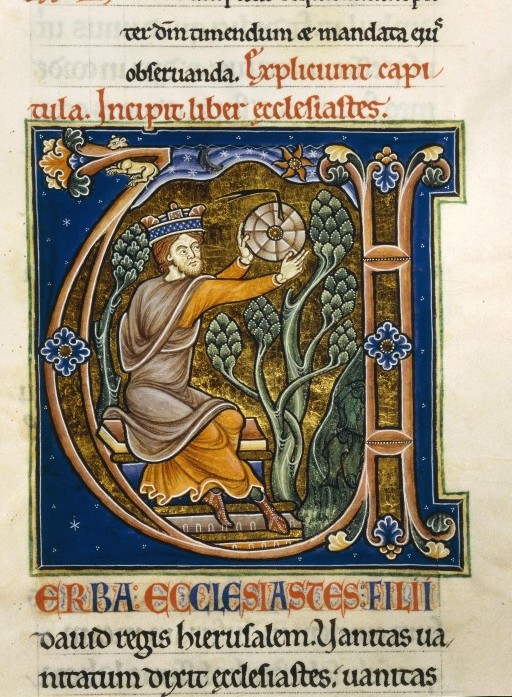 ter dñm timendum & mandata eiꝰ
obseruanda. Expliciunt capi
tula. Incipit liber ecclesiastes.
V
ERBA: ECCLESIASTES: FILII
dauid regis hierusalem. Vanitas ua
nitatum dixit ecclesiastes; uanitas